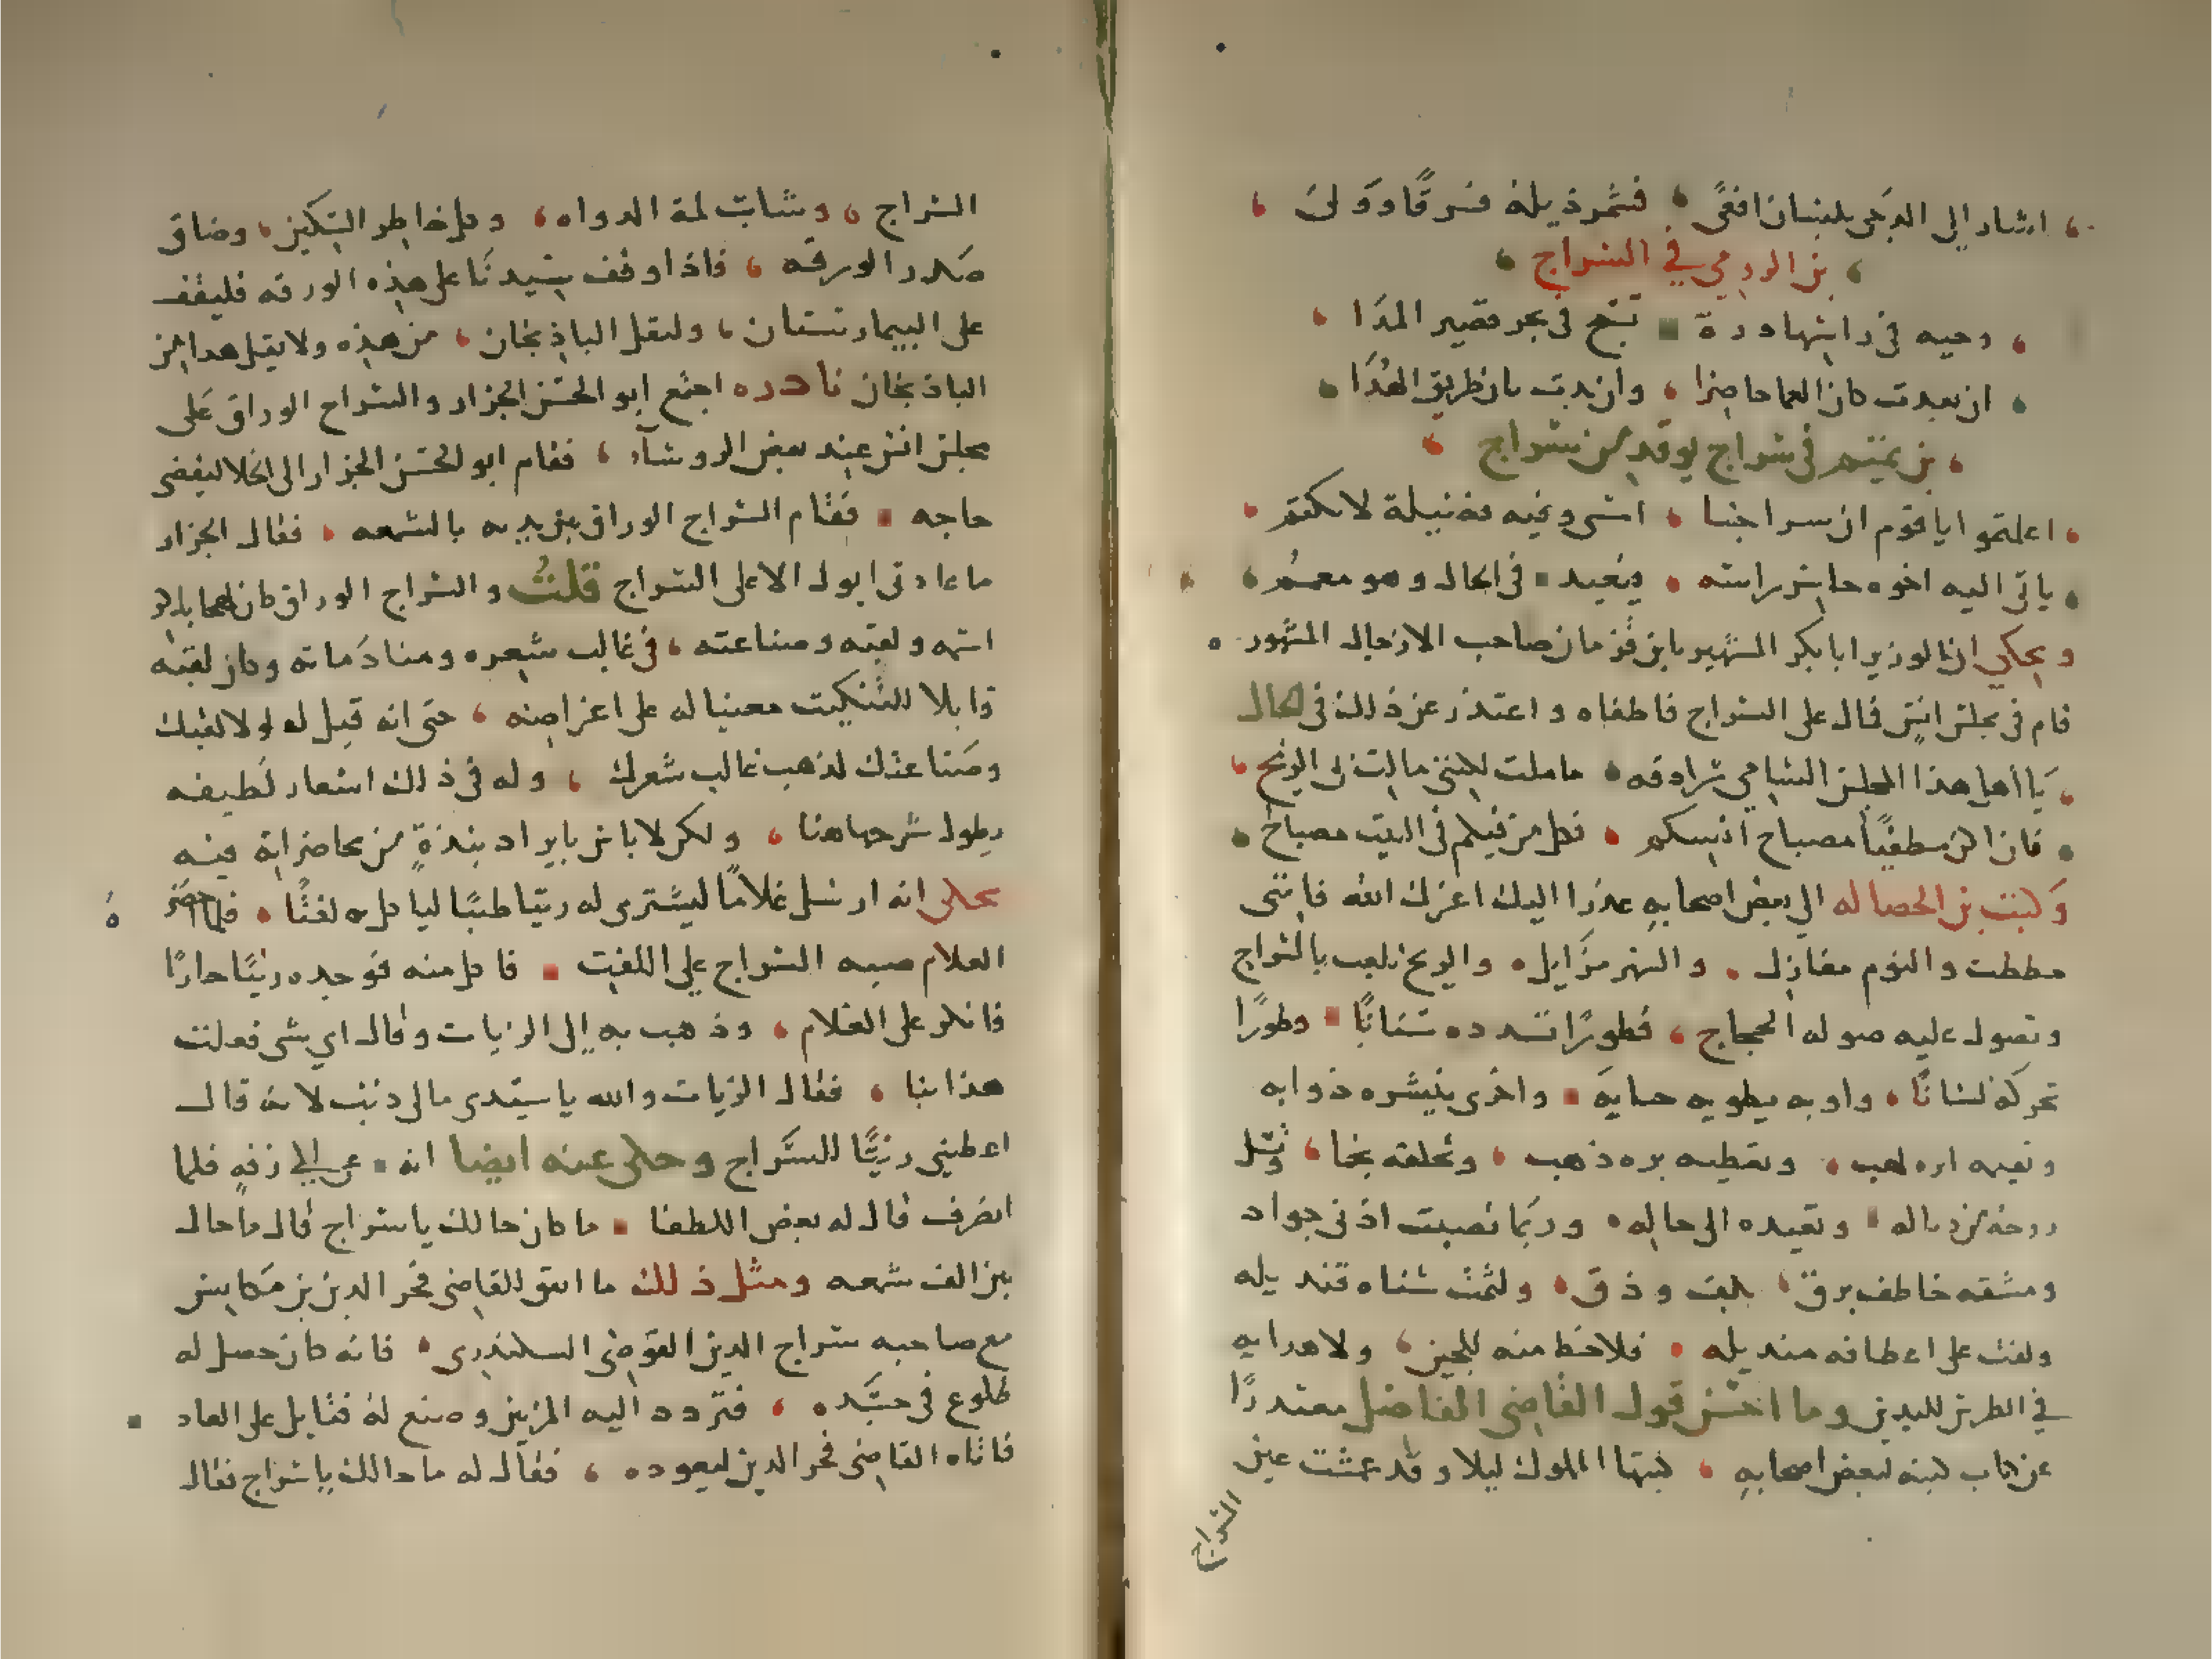 اشار الى الدجى بلسان افعى فشمر ذيله فرقا وولى
بن الرومي في السراج
وحيه في راسها درة تسبح في بحر قصير المدا
ان بعدت كان العما حاضرا وان بدت بان طريق الهدا
بن تميم في سراج يوقد من سراج
اعلمتمو ايا قوم ان سراجنا امسى وفيه فضيلة لا تكتم
ياتي اليه اخوه حاسر راسه ويعيد في الحال وهو معمم
ويحكي ان الوزير ابا بكر الشهير بابن قزمان صاحب الازجال المشهور
قام في مجلس انس فمال على السراج فاطفاه واعتذر عن ذلك في الحال
يا أهل هذا المجلس السامي سرادقه ما ملت لكنني مالت بي الريح
فان اكن مطفيا مصباح انسكم فكل من فيكم في البيت مصباح
وكتب بن الخصاله الى بعض اصحابه عذرا اليك اعزك الله فانني
خططت والنوم مغازل والنهر من ايل والريح تلعب بالسراج
وتصول عليه صوله الحجاج فطورا تسدده سنانا وطورا
تحركه لسانا واوبه يطويه حبابه واخرى ينشره ذوابه
وتقيمه ابره لهب وتعطيه بره ذهب
وتعيده الى حاله وربما نصبت اذني جواد
ومشقه خاطف برق بكف وذق ولثمت سناه قنديله
ولفت على اعطافه منديله فلا حظ منه للعين ولا هدايه
في الطرس لليدين وما احسن قول القاضي الفاضل معتذرا
عن كتاب كتبه لبعض اصحابه كتبها المملوك ليلا وقد عمشت عين
السراج
السراج وشابت لمة الدواه وكل خاطر السكين وضاق
صدر الورقه فاذا وقف سيدنا على هذه الورقه فليقف
على البيمارستان وليقل الباذنجان من هذه ولا يقل هذا من
الباذنجان نادره اجتمع ابو الحسن الجزار والسراج الوراق على
مجلس انس عند بعض الروساء فقام ابو الحسن الجزار الى الخلا ليقضى
حاجه فقام السراج الوراق بين يديه بالشمعه فقال الجزار
ما عادتي ابول الا على السراج قلت والسراج الوراق كان لهجا بذكر
اسمه ولقبه وصناعته في غالب شعره ومنادماته وكان لقبه
قابلا للتنكيت معينا له على اغراضه حتى انه قيل له لولا لقبك
وصناعتك لذهب غالب شعرك وله في ذلك اشعار لطيفه
يطول شرحها هنا ولكن لا باس بايراد نبذة من محاضراته فيه
يحكى انه ارسل غلاما ليشترى له زيتا طيبا لياكل به لفتا فلما احضره
الغلام صبه السراج على اللفت فاكل منه فوجده زيتا حارا
فانكر على الغلام وذهب به الى الزيات وقال اي شى فعلت
هذا بنا فقال الزيات والله يا سيدى مالى ذنب لانه قال
اعطيني زيتا للسراج وحكى عنه ايضا انه عزم الى زفه فلما
انصرف قال له بعض اللطفا ما كان حالك يا سراج قال ما حال
بين الف شمعه ومثل ذلك ما اتفق للقاضى فخر الدين بن مكانس
مع صاحبه سراج الدين القوصى السكندرى فانه كان حصل له
طلوع في جسده فتردد اليه المزين وصنع له فتايل على العاد
فاتاه القاضى فخر الدين ليعوده فقال له ما حالك يا سراج فقال